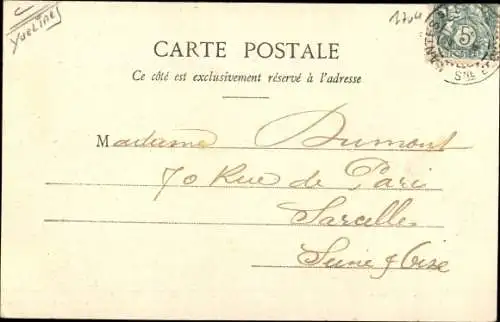 YVELINE
1704
MANTES
5
Sne
CARTE POSTALE
Ce côté est exclusivement réservé à l'adresse
Madame Dumont
70 Rue de Paris
Sarcelles
Seine & Oise